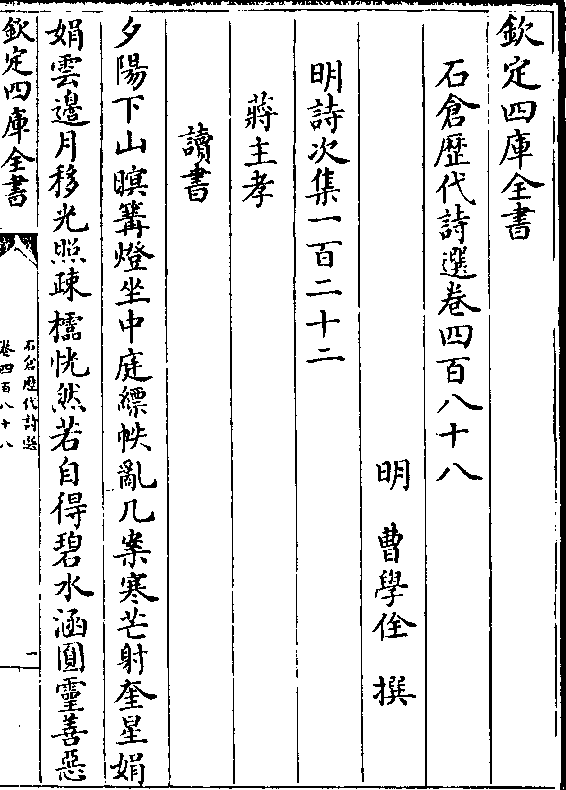 欽定四庫全書
石倉歷代詩選卷四百八十八
明 曹學佺 撰
明詩次集一百二十二
蔣主孝
讀書
夕陽下山暝篝燈坐中庭縹帙亂几案寒芒射奎星娟
娟雲邊月移光照疎櫺恍然若自得碧水涵圓靈善惡
欽定四庫全書
石倉歷代詩選
卷四百八十八
一